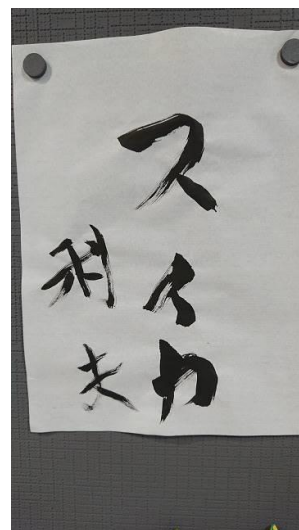 スイカ
利夫